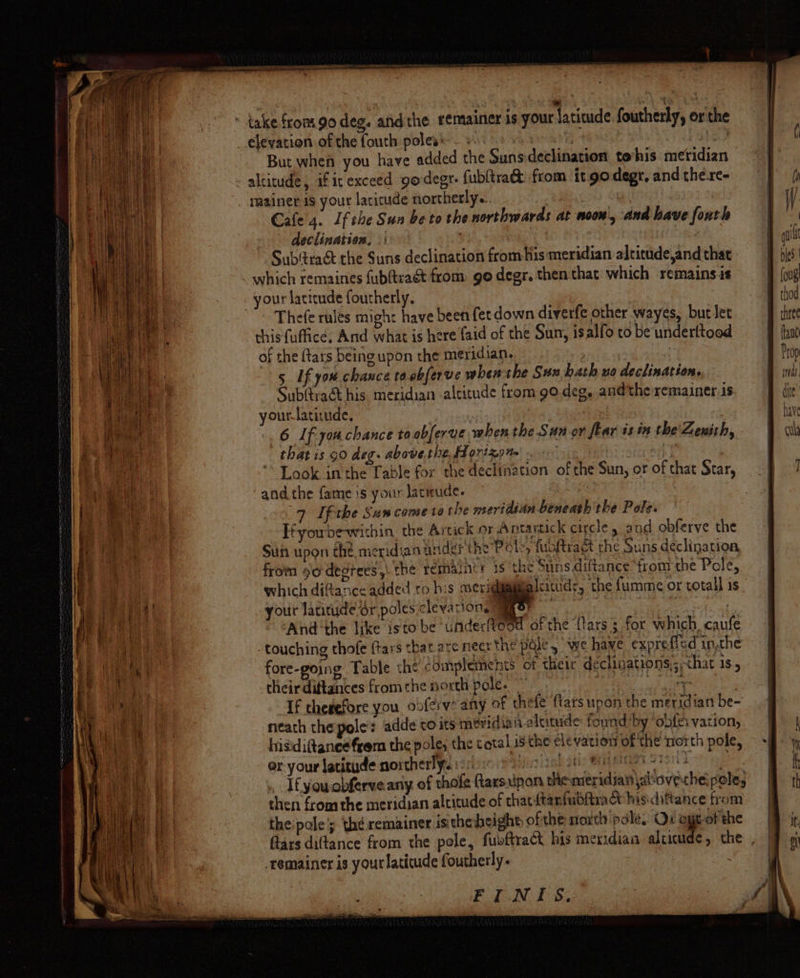 take from 90 deg. and the remainer is your latitude southerly, or the
elevation of the south poles.
But when you have added the Suns declination to his meridian
altitude, if it exceed 90 degr. substract from it 90 degr, and the re-
mainer is your latitude northerly.
Case 4. If the Sun be to the northwards at noon, and have south
declination.
Substract the Suns declination from his meridian altitude, and that
which remaines substract from 90 degr. then that which remains is
your latitude southerly.
These rules might have been set down diverse other wayes, but let
this suffice. And what is here said of the Sun, is also to be understood
of the stars being upon the meridian.
5 If you chance to observe when the Sun hath no declination.
Substract his meridian altitude from 90 deg. and the remainer is
your latitude.
6 If you chance to observe when the Sun or star is in the Zenith,
that is 90 deg. above the Horizon.
Look in the Table for the declination of the Sun, or of that Star,
and the same is your latitude.
7 If the Sun come to the meridian beneath the Pole.
If you be within the Artick or Antartick circle, and observe the
Sun upon the meridian under the Pole, substract the Suns declination
from 90 degrees, the remainer is the Suns distance from the Pole,
which distance added to his meridian altitude, the summe or totall is
your latitude or poles elevation.
And the like is to be understood of the stars; for which cause
touching those stars that are neer the pole, we have expressed in the
fore-going Table the complements of their declinations, that is,
their distances from the north pole.
If therefore you observe any of these stars upon the meridian be-
neath the pole: adde to its meridian altitude found by observation,
his distance from the pole, the total is the elevation of the north pole,
or your latitude northerly.
If you observe any of those stars upon the meridian above the pole;
then from the meridian altitude of that star substract his distance from
the pole; the remainer is the height of the north pole. Or out of the
stars distance from the pole, substract his meridian altitude, the
remainer is your latitude southerly.
FINIS.